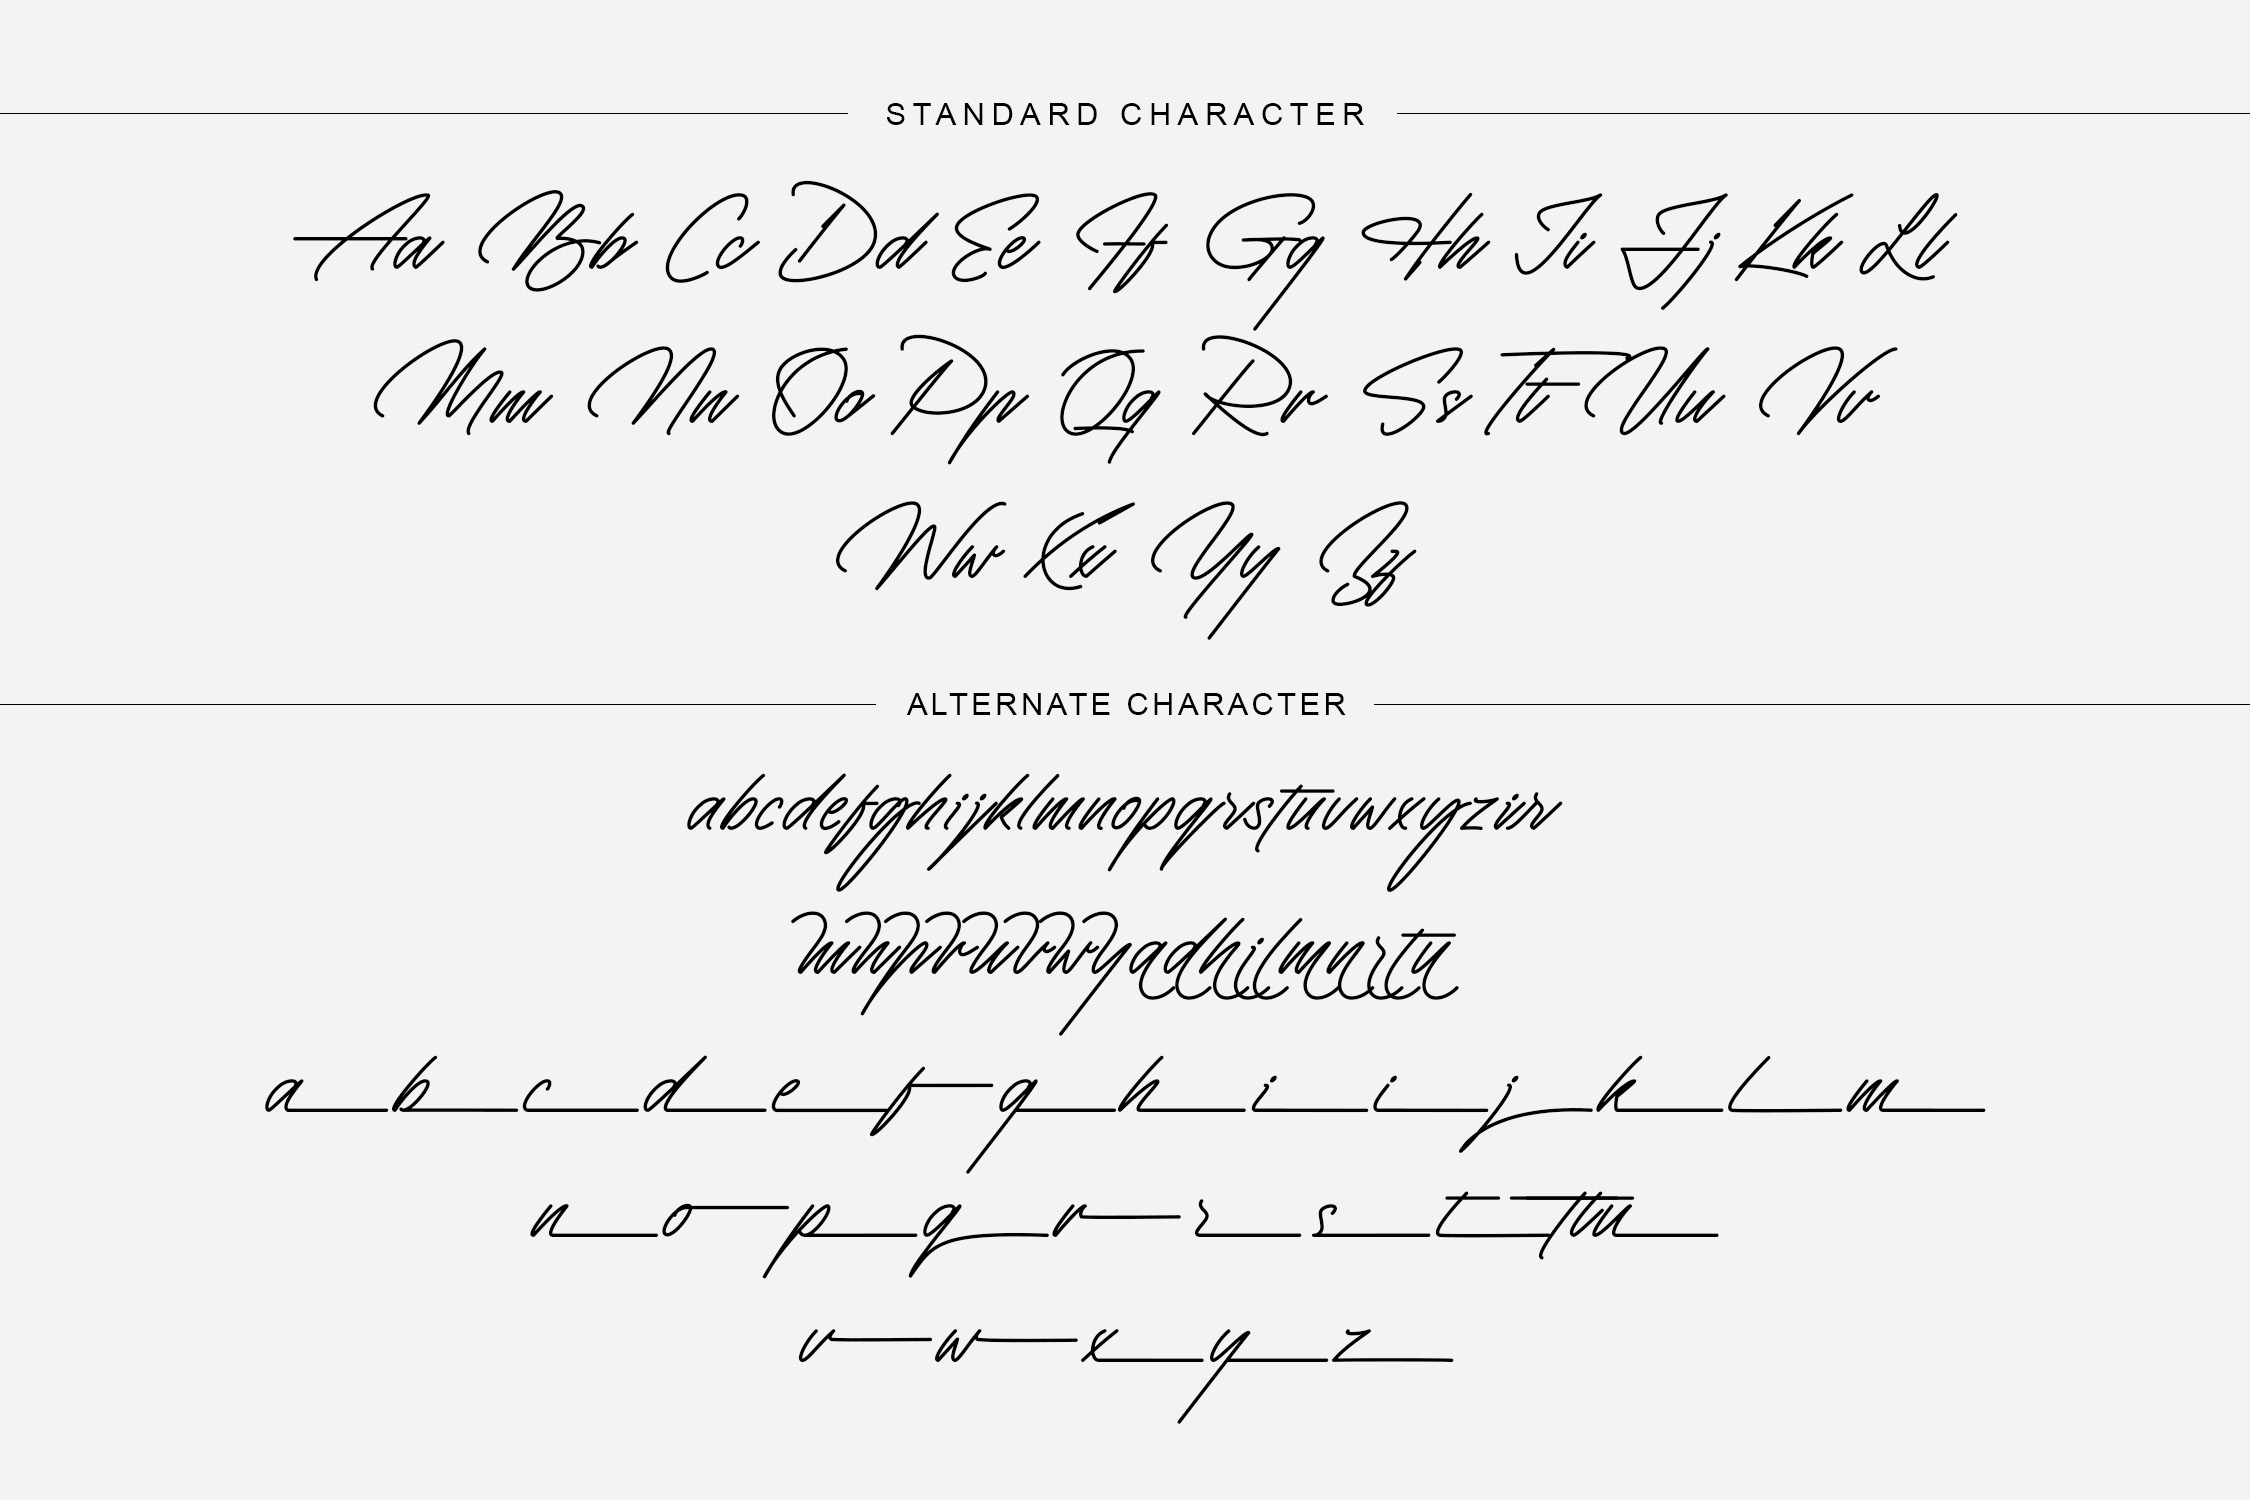 STANDARD CHARACTER
Aa Bb Cc Dd Ee Ff Gg Hh Ii Jj Kk Ll
Mm Nn Oo Pp Qq Rr Ss Tt Uu Vv
Ww Xx Yy Zz
ALTERNATE CHARACTER
abcdefghijklmnopqrstuvwxyzir
mnpruvwyadhilmnrtu
a b c d e f g h i i j k l m
n o p q r r s t ttu
v w x y z